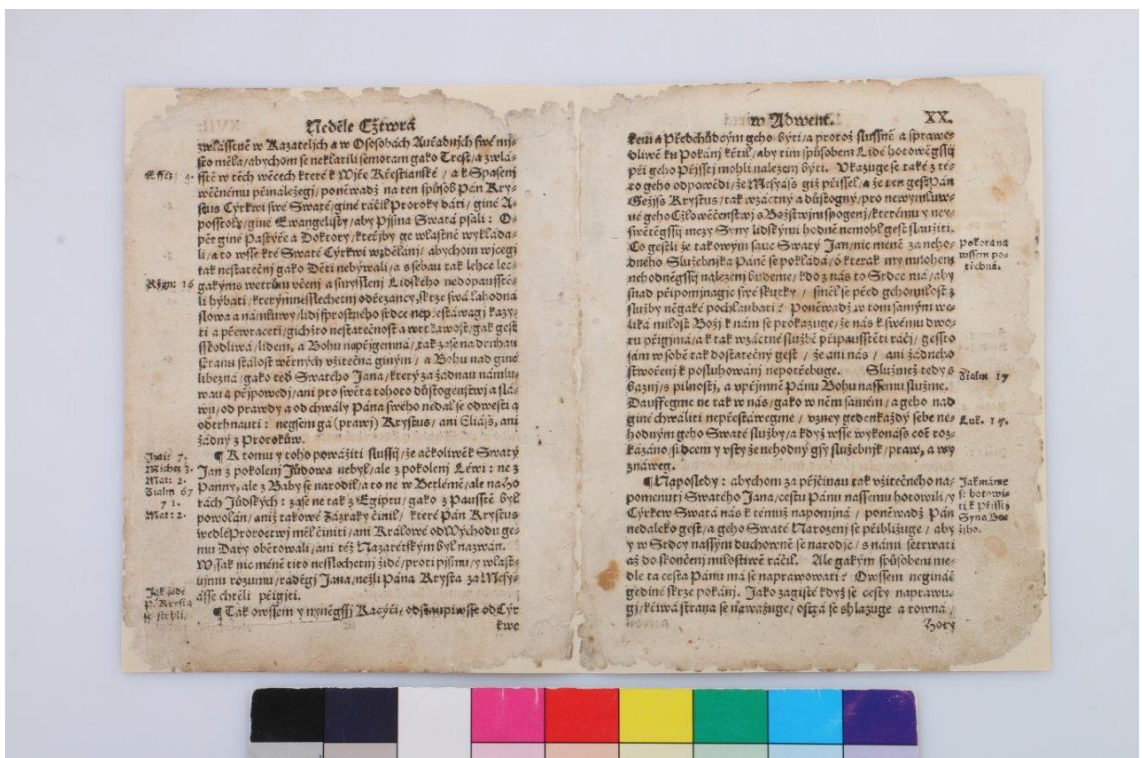 Neděle Cžtwrá
zwlásstně w Kazateljch a w Ososobách Auřadnjch swé mij-
sto měla / abychom se neklatili semotam gako Trest / a zwlá-
sstě w těch wěcech kteréž k Wjře Křestianské / a k Spasenj
Effez: 4.
wěčnému přináležegj / poněwadž na ten spůsob Pán Kry-
stus Cýrkwi swé Swaté / giné ráčil Proroky dáti / giné A-
posstoly / giné Ewangelisty / aby Pjsma Swatá psali: O-
pět giné Pastýře a Doktory / kteřjby ge wlastně wykláda-
li / a to wsse k té Swaté Cýrkwi wzdělánj / abychom wjcegi
tak nestatečnj gako Děti nebýwali / a s sebau tak lehce lec-
gakýmis wětrům včenj a smysslenj Lidského nedopausstě-
Ržjm: 16
li hýbati / kterýmiz nesslechetnj odřezancy / skrze swá lahodná
slowa a námluwy / lidj sprostného srdce nepřestáwagj kazy-
ti a přewraceti / gichžto nestatečnost a wrtkawost / gak gest
sskodliwá / lidem / a Bohu nepřjgemná / tak zase na druhau
stranu stálost wěrných vžitečná giným / a Bohu nad giné
libezná / gako teď Swatého Jana / který za žádnau námlu-
wau a přjpowědj / ani pro swěta tohoto důstogenstwj a slá-
wu / od prawdy a od chwály Pána swého nedal se odwesti a
odtrhnauti: negsem gá (prawj) Krystus / ani Eliáss, ani
žádný z Proroků.
¶ K tomu y toho powážiti slussij / že ačkoliwěk Swatý
Izai: 7.
Jan z pokolenj Jůdowa nebyl / ale z pokolenj Léwi: ne z
Michea 3.
Panny, ale z Baby se narodil / a to ne w Betlémě / ale na ho-
Mat: 2.
rách Jůdských: zase ne tak z Egiptu / gako z Pausstě byl
Žialm 67
71.
powolán / aniž takowé Zázraky činil / které Pán Krystus
Mat: 2.
wedlé Proroctwj měl činiti / ani Králowé od Wýchodu ge-
mu Dary obětowali / ani též Nazaretským byl nazwán.
Wssak nic méně tito nesslechetnj židé / proti pjsmu / y wlast-
njmu rozumu / raděgi Jana / nežli Pána Krysta za Mesy-
ásse chtěli přigjti.
Jak židé
P. Krysta
se strhli /
¶ Tak owssem y nyněgssj Kacýři / odstaupiwsse od Cýr
kwe
w Adwent. XX.
kem a Předchůdcým geho býti / a protož slussně a sprawe-
dliwě ku Pokánj křtil / aby tjm spůsobem Lidé hotowěgssij
při geho Přjsstj mohli nalezeni býti. Vkazuge se také z té-
to geho odpowědi / že Mesyáss giž přissel / a že ten gest Pán
Gežjss Krystus / tak wzáctný a důstogný / pro newymluw-
né geho Cžlowěčenstwj s Božstwjm spogenj / kterému y ney-
swětěgssij mezy Syny lidskými hodně nemohl gest slaužiti.
Co gestli že takowým sauc Swatý Jan / nic méně za neho-
Pokorana
wssem po-
těchná.
dného Služebnjka Páně se pokládá / ó kterak my mnohem
nehodněgssij nalezeni budeme / kdo z nás to Srdce má / aby
snad připomjnagjc swé skutky / směl se před geho milostj z
služby něgaké pochlaubati? Poněwadž w tom samým we-
liká milost Božj k nám se prokazuge / že nás k swému dwo-
ru přigjmá / a k tak wzáctné službě připausstěti ráčj / gessto
sám w sobě tak dostatečný gest / že ani nás / ani žádného
stwořenj k posluhowánj nepotřebuge. Služmež tedy s
Žialm 17
báznj / s pilnostj, a vpřjmně Pánu Bohu nassemu služme.
Dauffegme ne tak w nás / gako w něm samém / a geho nad
giné chwáliti nepřestáwegme / vzney gedenkaždý sebe ne-
Luk. 15.
hodným geho Swaté služby / a když wsse wykonáss což roz-
kázáno / srdcem y vsty že nehodný gsy služebnjk / praw, a wy
znáweg.
¶ Naposledy: abychom za přjčinau tak vžitečného na-
Jak máme
se hotowi-
ti k Přjsstj
Syna Bo-
žjho.
pomenutj Swatého Jana / cestu Pánu nassemu hotowili / y
Cýrkew Swatá nás k témuž napomjná / poněwadž Pán
nedaleko gest / a geho Swaté Narozenj se přibližuge / aby
y w Srdcy nassým duchowně se narodil / s námi setrwati
až do skončenj milostiwě ráčil. Ale gakým spůsobem we-
dle ta cesta Pánu má se naprawowati? Owssem neginác
gediné skrze pokánj. Jako zagisté když se cesty naprawu-
gj / křiwá strana se nawažuge / ostrá se shlazuge a rowná /
Hory